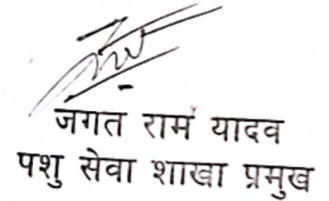 जगत राम यादव
पशु सेवा शाखा प्रमुख